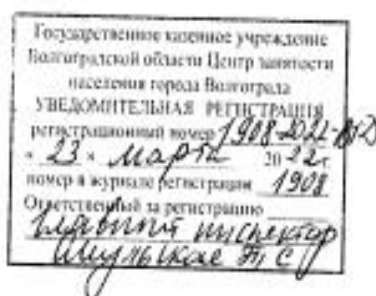 Государственное казенное учреждение
Волгоградской области Центр занятости
населения города Волгограда
УВЕДОМИТЕЛЬНАЯ РЕГИСТРАЦИЯ
регистрационный номер 1908-2022-
« 23 » марта 2022 г.
номер в журнале регистрации 1908
Ответственный за регистрацию
главный инспектор